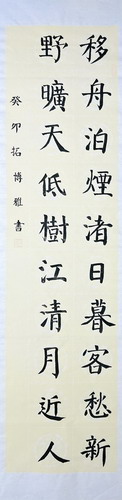 移舟泊煙渚日暮客愁新
野曠天低樹江清月近人
癸卯拓博雅書